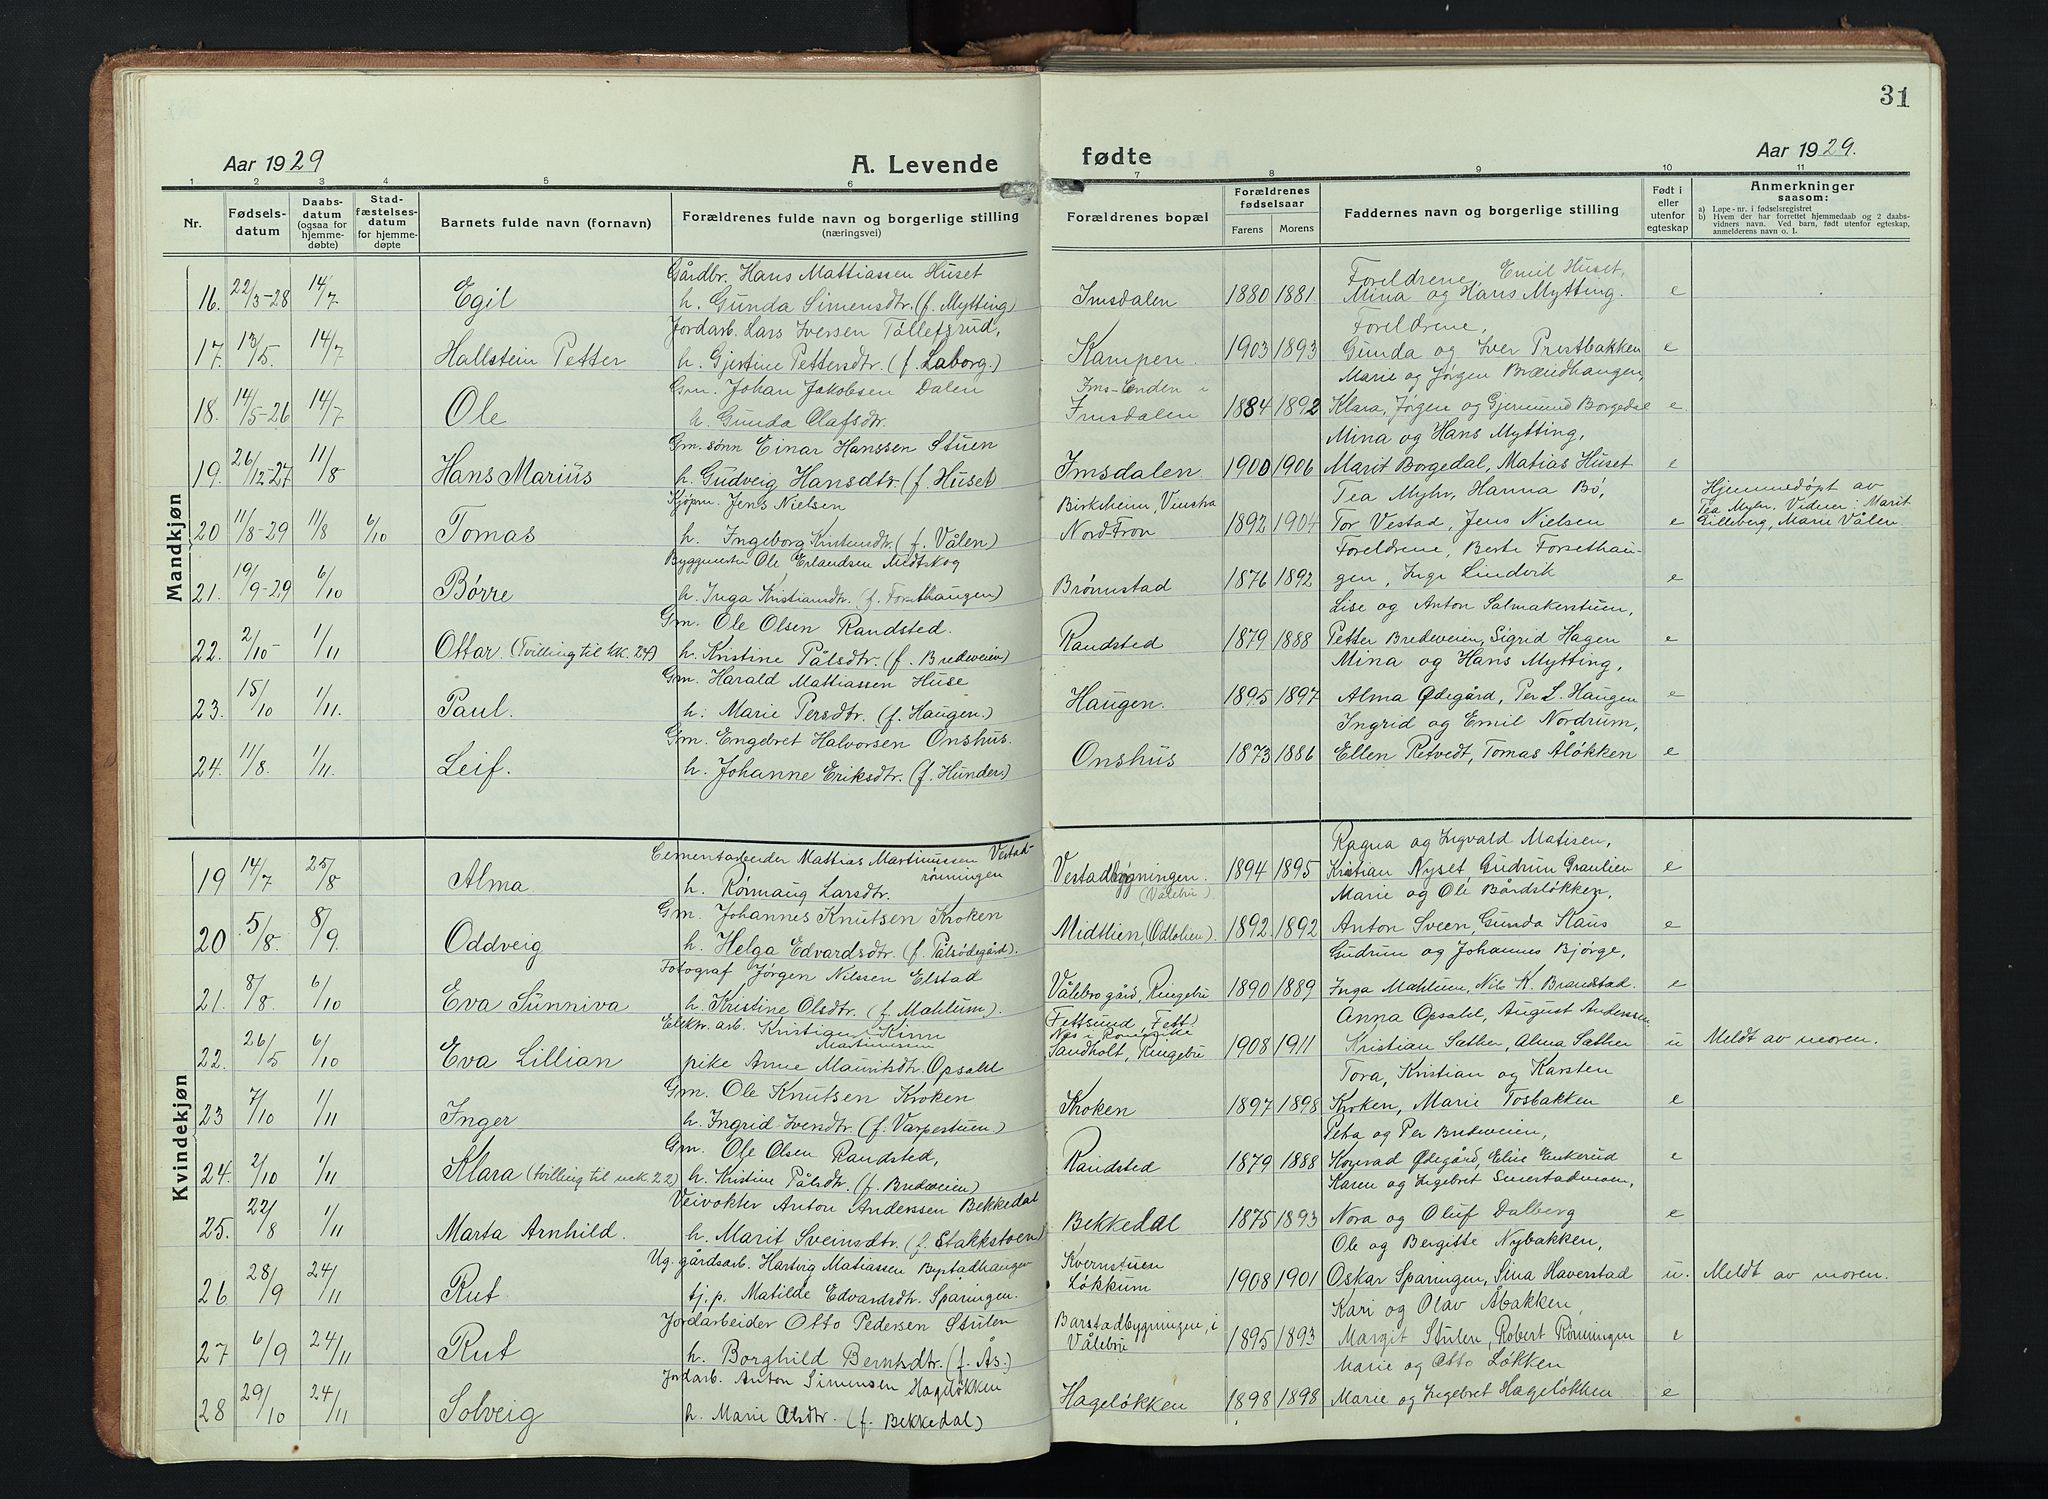 31
Aar 1929
A. Levende
fødte
Aar 1929.
1 2 3 4 5 6 7 8 9 10 11
Nr.
Fødsels-
datum
Daabs-
datum
(ogsaa for
hjemme-
døbte)
Stad-
fæstelses-
datum
for hjemme-
døpte
Barnets fulde navn (fornavn)
Forældrenes fulde navn og borgerlige stilling
(næringsvei)
Forældrenes bopæl
Forældrenes
fødselsaar
Farens
Morens
Faddernes navn og borgerlige stilling
Født i
eller
utenfor
egteskap
Anmerkninger
saasom:
a) Løpe-nr. i fødselsregistret
b) Hvem der har forrettet hjemmedaab og 2 daabs-
vidners navn. Ved barn, født utenfor egteskap,
anmelderens navn o. l.
Mandkjøn
Gårdbr. Hans Mattiassen Huset
Foreldrene, Emil Huset,
16. 22/3-28 14/7 Egil h. Gunda Simensdtr. (f. Mytting) Imsdalen 1880 1881 Mina og Hans Mytting. e
Jordarb. Lars Iversen Tollefsrud,
Foreldrene,
17. 13/5 14/7 Hallstein Petter h. Gjertine Pettersdtr. (f. Laborg.) Kampen 1903 1893 Gunda og Iver Prestbakken e
Gm. Johan Jakobsen Dalen
Ims-Enden i
Marie og Jørgen Brændhaugen,
18. 14/5-26 14/7 Ole h. Gunda Olafsdtr. Imsdalen 1884 1892 Klara, Jørgen og Gjermund Borgedal e.
Gm. sønn Einar Hanssen Stuen
Mina og Hans Mytting,
19. 26/12-27 11/8 Hans Marius h. Gudveig Hansdtr (f. Huset) Imsdalen 1900 1906 Marit Borgedal, Matias Huset e
Kjøpm. Jens Nielsen
Birkeheim, Vinstra
Tea Myhr, Hanna Bø,
Hjemmedøpt av
Tea Myhr. Vidner: Marit
20 11/8-29 11/8 6/10 Tomas h. Ingeborg Kristensdtr. (f. Vålen) Nord-Fron 1892 1904 Tor Vestad, Jens Nielsen e Gilleberg, Marie Vålen.
Byggmester Ole Erlandsen Medtskog
Foreldrene, Berte Forsethau-
21. 19/9-29 6/10 Børre h. Inga Kristiansdtr. (f. Forsethaugen) Brønnstad 1876 1892 gen, Inge Lindvik e
Gm. Ole Olsen Randsted.
Lise og Anton Salmakerstuen,
22. 2/10- 1/11 Ottar. (Tvilling til kk. 24) h. Kristine Pålsdtr. (f. Bredeveien) Randsted 1879 1888 Petter Bredeveien, Sigrid Hagen e
Gm. Harald Mattiassen Huse
Mina og Hans Mytting,
23. 15/10 1/11. Paul. h. Marie Persdtr. (f. Haugen.) Haugen. 1895 1897 Alma Ødegård, Per L. Haugen e
Gm. Engebret Halvorsen Onshus.
Ingrid og Emil Nordrum,
24. 11/8. 1/11. Leif. h. Johanne Eriksdtr. (f. Hunder.) Onshus 1873 1886 Ellen Retvedt, Tomas Åløkken e
Kvindekjøn
Cementarbeider Mattias Martinussen Vestad-
rønningen
Ragna og Ingvald Matisen,
19 14/7 25/8 Alma h. Rønnaug Larsdtr. Vestadbygningen. (Vålebru) 1894 1895 Kristian Nyset, Gudrun Graulien e
Gm. Johannes Knutsen Kroken
Marie og Ole Bårdsløkken,
20 5/8. 8/9. Oddveig h. Helga Edvardsdtr. (f. Pålsødegård). Midtlien, (Odlolien). 1892 1892 Anton Sveen, Gunda Klaus e
Fotograf Jørgen Nilssen Elstad
Gudrun og Johannes Bjørge,
21. 8/8. 6/10 Eva Sunniva h. Kristine Olsdtr. (f. Mahlum). Vålebro gård, Ringebu 1890 1889 Inga Mahlum, Nils K. Brandstad. e
Elektr. arb. Kristian Kinn
Martinussen
Fettsund, Fett.
Nes i Romerike
Anna Opsahl, August Anderssen
22. 26/5 6/10 Eva Lillian pike Anne Mauritsdtr. Opsahl Sandholt, Ringebu 1908 1911 Kristian Sæther, Alma Sæther u Meldt av moren.
Gm. Ole Knutsen Kroken
Tora, Kristian og Karsten
23 7/10 1/11 Inger h. Ingrid Iversdtr. (f. Varpestuen) Kroken 1897 1898 Kroken, Marie Tosbakken e
Gm. Ole Olsen Randsted,
Petra og Per Bredeveien,
24. 2/10 1/11 Klara (tvilling til mk. 22) h. Kristine Pålsdtr. (f. Bredeveien) Randsted 1879 1888 Konrad Ødegård, Elise Enkerud e
Veivokter Anton Anderssen Bekkedal
Karen og Ingebret Smestadmoen,
25. 22/8 1/11 Marta Arnhild. h. Marit Sveinsdtr. (f. Stakkstoen) Bekkedal 1875 1893 Nora og Oluf Dalberg e
Ug. gårdsarb. Hartvig Matiassen Bystadhaugen
Kvernstuen
Ole og Bergitte Nybakken,
26 28/9 24/11 Rut tj.p. Matilde Edvardsdtr. Sparingen. Løkkum 1908 1901 Oskar Sparingen, Sina Haverstad u. Meldt av moren.
Jordarbeider Otto Pedersen Stulen
Barstadbygningen, i
Kari og Olav Åbakken,
27 6/9 24/11 Rut h. Borghild Berntsdtr. (f. Ås.) Vålebru 1895 1893 Margit Stulen, Robert Rønningen e
Jordarb. Anton Simensen Hageløkken
Marie og Otto Løkken
28 29/10 24/11 Solveig h. Marie Olsdtr. (f. Bekkedal) Hageløkken 1898 1898 Marie og Ingebret Hageløkken e